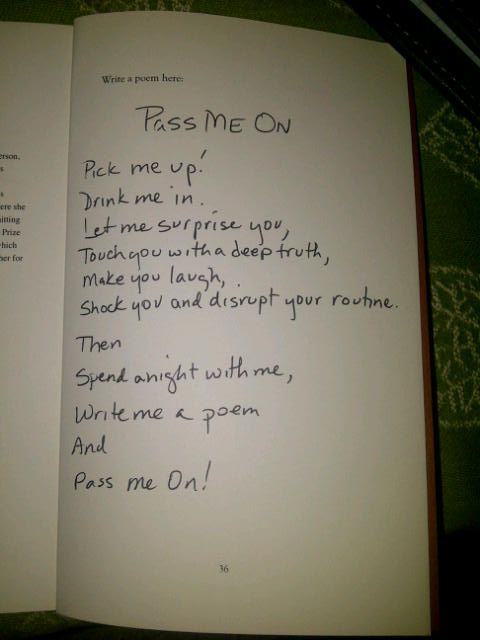 erson,
s
s
ere she
itting
Prize
hich
her for
Write a poem here:
PASS ME ON
Pick me up!
Drink me in.
Let me surprise you,
Touch you with a deep truth,
Make you laugh,
Shock you and disrupt your routine.
Then
Spend a night with me,
Write me a poem
And
Pass me On!
36